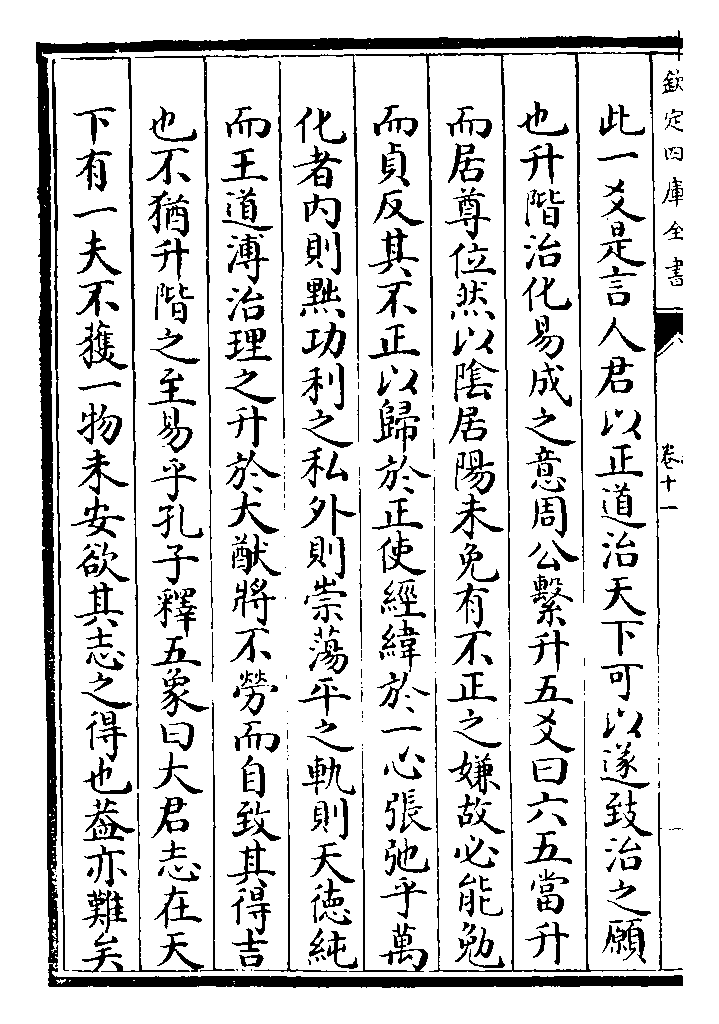 欽定四庫全書
卷十一
此一爻是言人君以正道治天下可以遂致治之願
也升階治化易成之意周公繫升五爻曰六五當升
而居尊位然以陰居陽未免有不正之嫌故必能勉
而貞反其不正以歸於正使經緯於一心張弛乎萬
化者内則黜功利之私外則崇蕩平之軌則天徳純
而王道溥治理之升於大猷將不勞而自致其得吉
也不猶升階之至易乎孔子釋五象曰大君志在天
下有一夫不獲一物未安欲其志之得也葢亦難矣